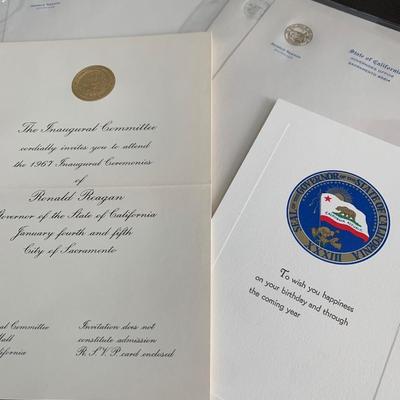 The Inaugural Committee
cordially invites you to attend
the 1967 Inaugural Ceremonies
of
Ronald Reagan
Governor of the State of California
January fourth and fifth
City of Sacramento
Committee
Invitation does not
constitute admission
R.S.V.P. card enclosed
State of California
GOVERNOR'S OFFICE
SACRAMENTO 95814
SEAL OF THE GOVERNOR OF THE STATE OF CALIFORNIA
XXXIII
CALIFORNIA REPUBLIC
To wish you happiness
on your birthday and through
the coming year